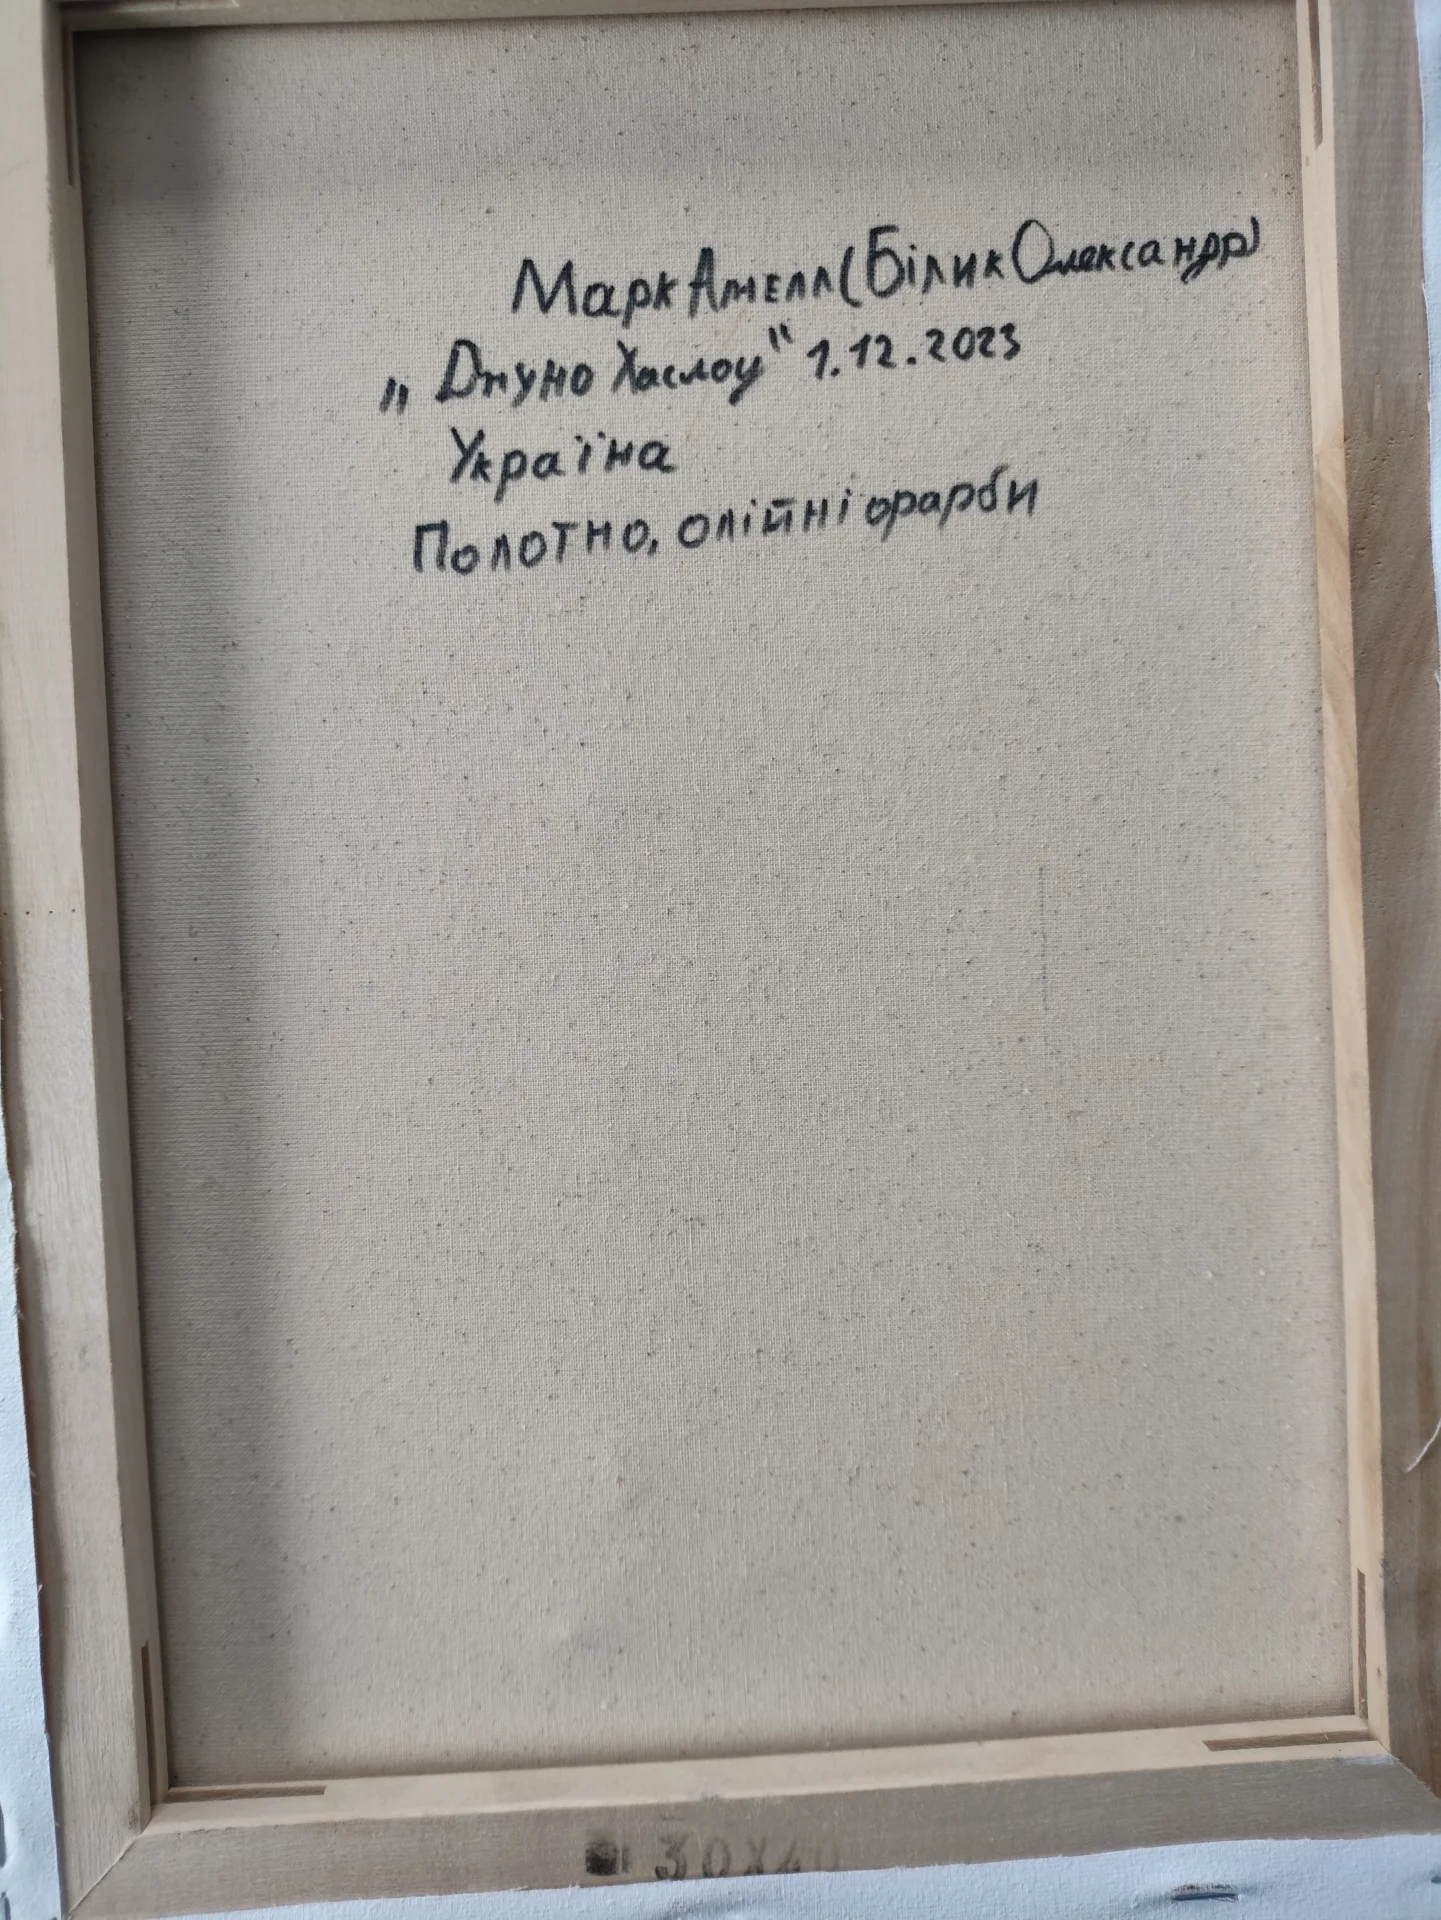 Марк Амелл (Білик Олександр)
„Джуно Хаслоу" 1.12.2023
Україна
Полотно, олійні фарби
30X40